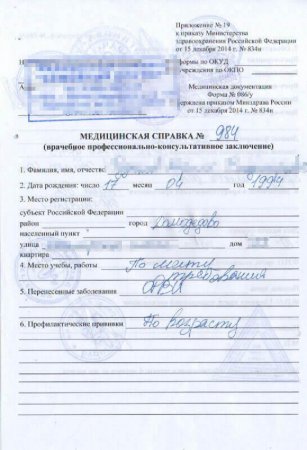 Приложение № 19
к приказу Министерства
здравоохранения Российской Федерации
от 15 декабря 2014 г. № 834н
формы по ОКУД
учреждения по ОКПО
Медицинская документация
Форма № 086/у
Утверждена приказом Минздрава России
от 15 декабря 2014 г. № 834н
МЕДИЦИНСКАЯ СПРАВКА № 984
(врачебное профессионально-консультативное заключение)
1. Фамилия, имя, отчество:
2. Дата рождения: число 17 месяц 04 год 1994
3. Место регистрации:
субъект Российской Федерации
район город Домодедово
населенный пункт
улица дом
квартира
4. Место учебы, работы По месту
требования
5. Перенесенные заболевания ОРВИ
6. Профилактические прививки По возрасту